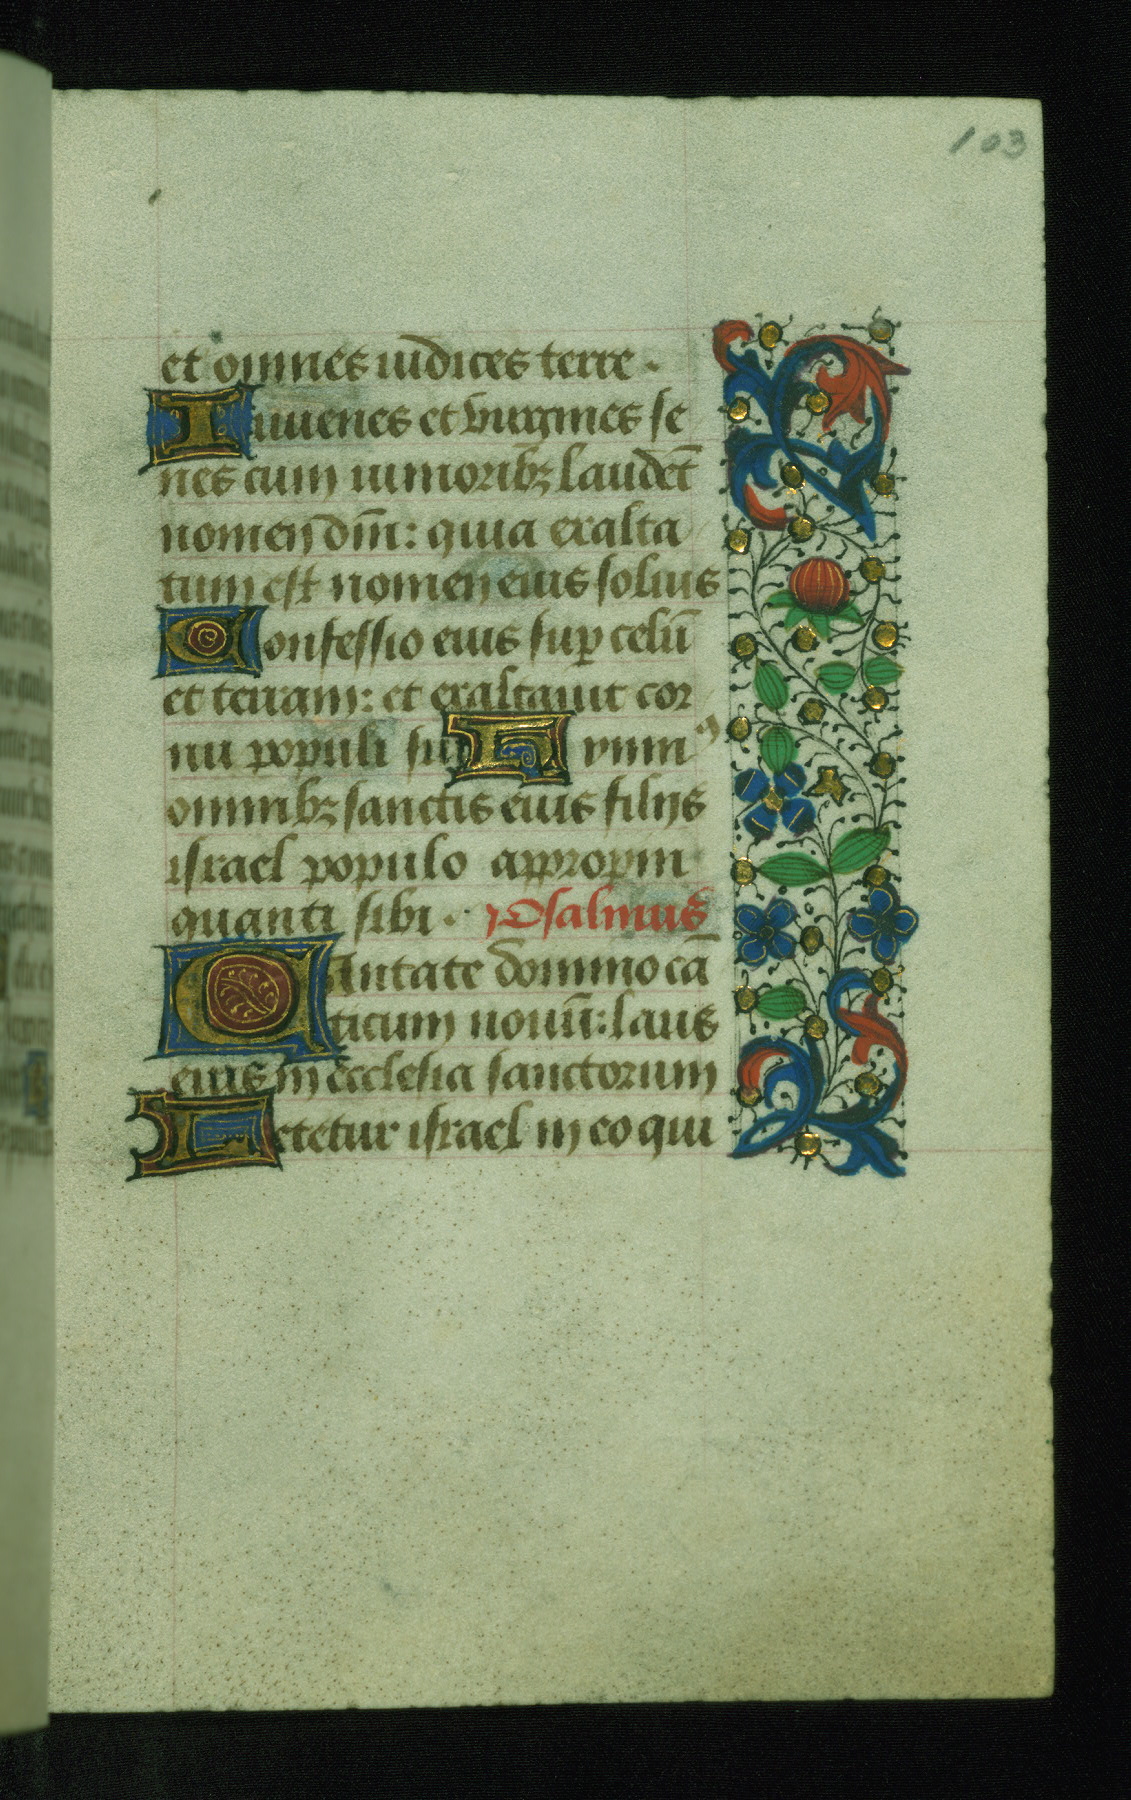 103
et omnes iudices terre .
Iuuenes et virgines se
nes cum iuniorib⁊ laudēt
nomen dn̄i: quia exalta
tum est nomen eius solius
Confessio eius sup̱ celū
et terram: et exaltauit cor
nu populi sui Hymnꝰ
omnib⁊ sanctis eius filijs
israel populo appropin
quanti sibi . Psalmus
Cantate domino cā
ticum nouū: laus
eius in ecclesia sanctorum
Letetur israel in eo qui